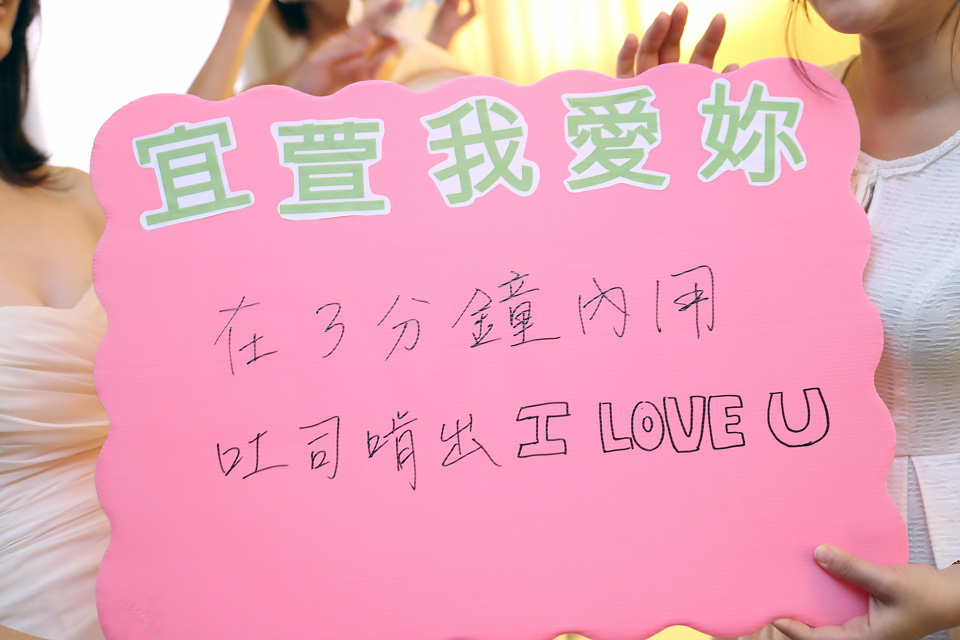 宜萱我愛妳
在3分鐘內用
吐司啃出I LOVE U